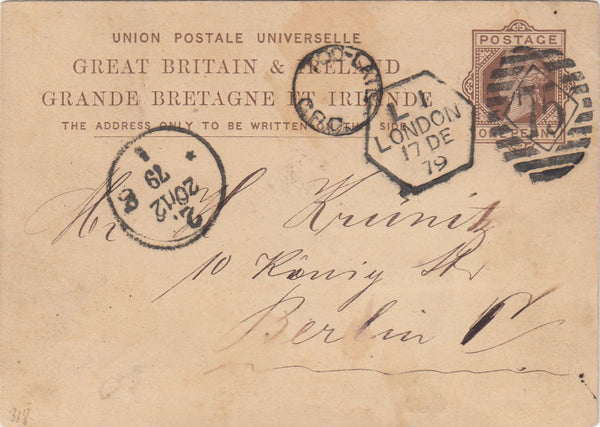 UNION POSTALE UNIVERSELLE
GREAT BRITAIN & IRELAND
GRANDE BRETAGNE ET IRLANDE
THE ADDRESS ONLY TO BE WRITTEN ON THIS SIDE
POSTAGE
ONE PENNY
TOO-LATE
L
LONDON
17 DE
79
20/12
79
Hr H. Krünitz
10 König Str
Berlin C
318